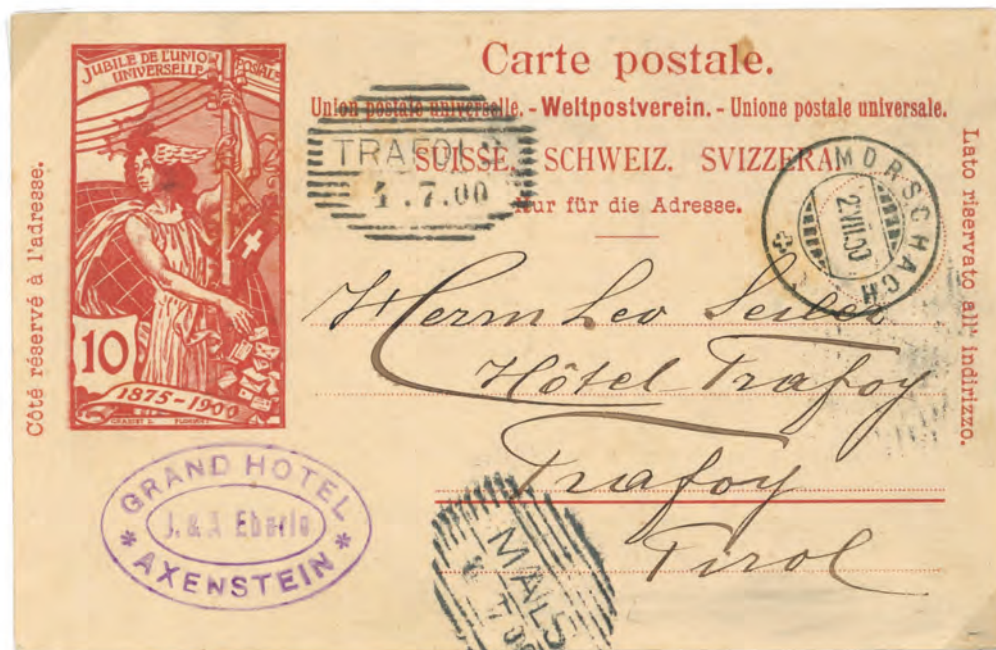 Carte postale.
Union postale universelle. - Weltpostverein. - Unione postale universale.
SUISSE. SCHWEIZ. SVIZZERA
Nur für die Adresse.
Côté réservé à l'adresse.
Lato riservato all' indirizzo.
JUBILÉ DE L'UNION POSTALE
UNIVERSELLE
10
1875-1900
GRASSET D.
TRAFOI
1.7.00
MORSCHACH
2.VII.00
Herrn Leo
Hôtel Trafoy
Trafoy
Tirol
GRAND HOTEL
J. & A Eberle
* AXENSTEIN *
MALS